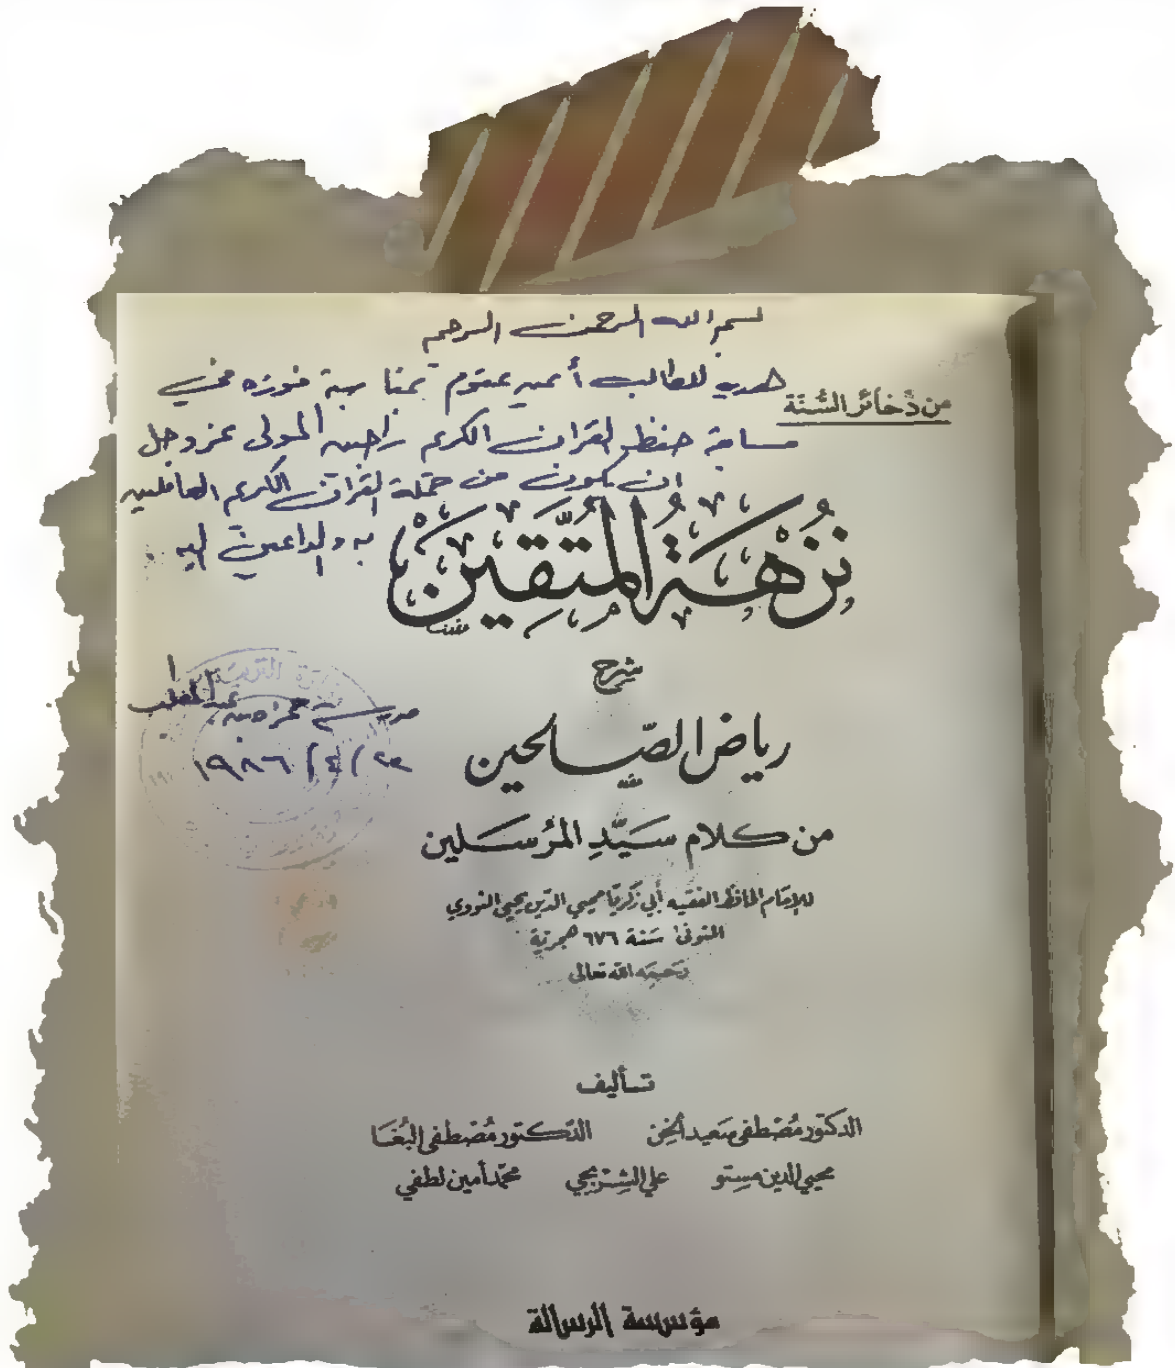 بسم الله الرحمن الرحيم
هدية للطالب أيمن عتوم بمناسبة فوزه في
مسابقة حفظ القرآن الكريم راجين المولى عز وجل
ان يكون من حملة القرآن الكريم العاملين
به والداعين إليه
من ذخائر السُّنَّة
نُزهَةُ المُتَّقِينَ
شرح
رياض الصَّالحين
من كلام سَيِّدِ المُرْسَلين
للإمَام الحافظ الفقيه أبي زكريّا محيي الدّين يحيى النووي
المتوفى سَنة ٦٧٦ هجرية
رَحِمَه الله تعالى
مدرسة
عبد المطلب
١٩٨٦/٤/٢٢
تأليف
الدكتور مُصْطفى سَعيد الخِن الدّكتور مُصْطفى البُغَا
محيي الدين مستو علي الشّربجي محمّد أمين لطفي
مؤسسة الرسالة